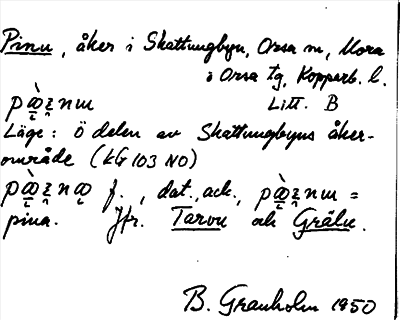 Pinu, åker i Skattungbyn, Orsa sn, Mora
o Orsa tg, Kopparb. l.
Litt. B
Läge: Ö delen av Skattungbyns åker-
område (kG 103 NO)
f., dat., ack., =
pina. Jfr. Tarvu och Grälu.
B. Granholm 1950